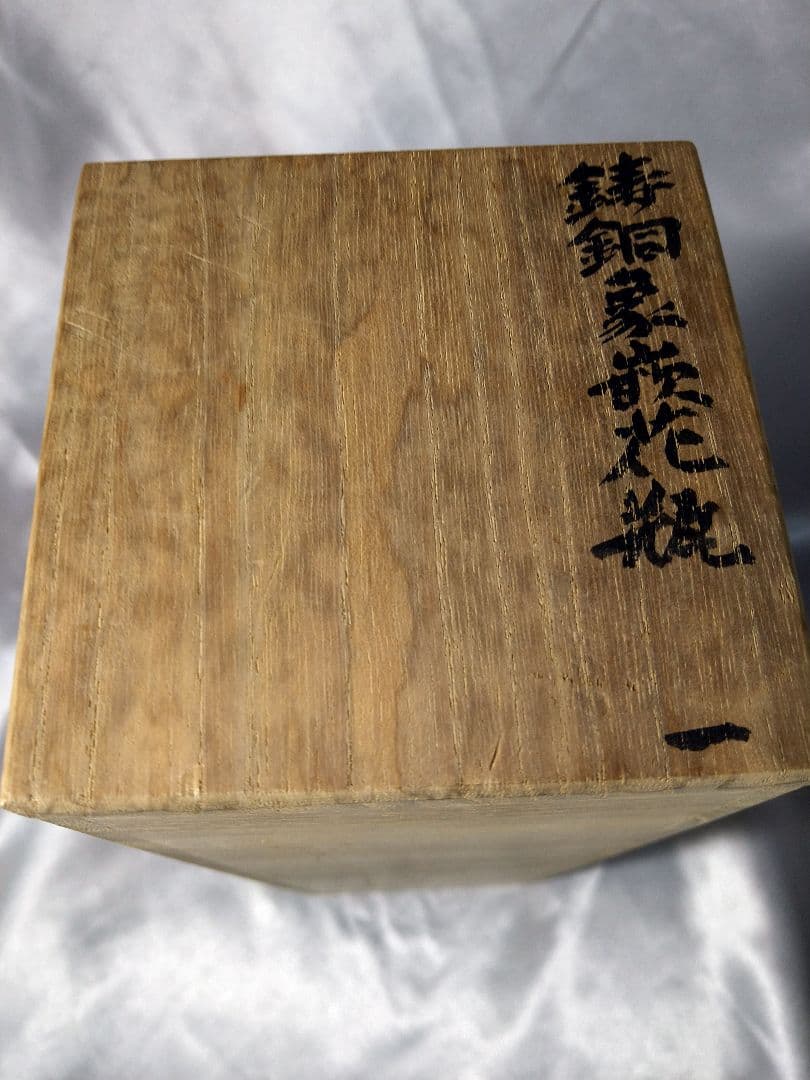 鋳銅象嵌花瓶 一